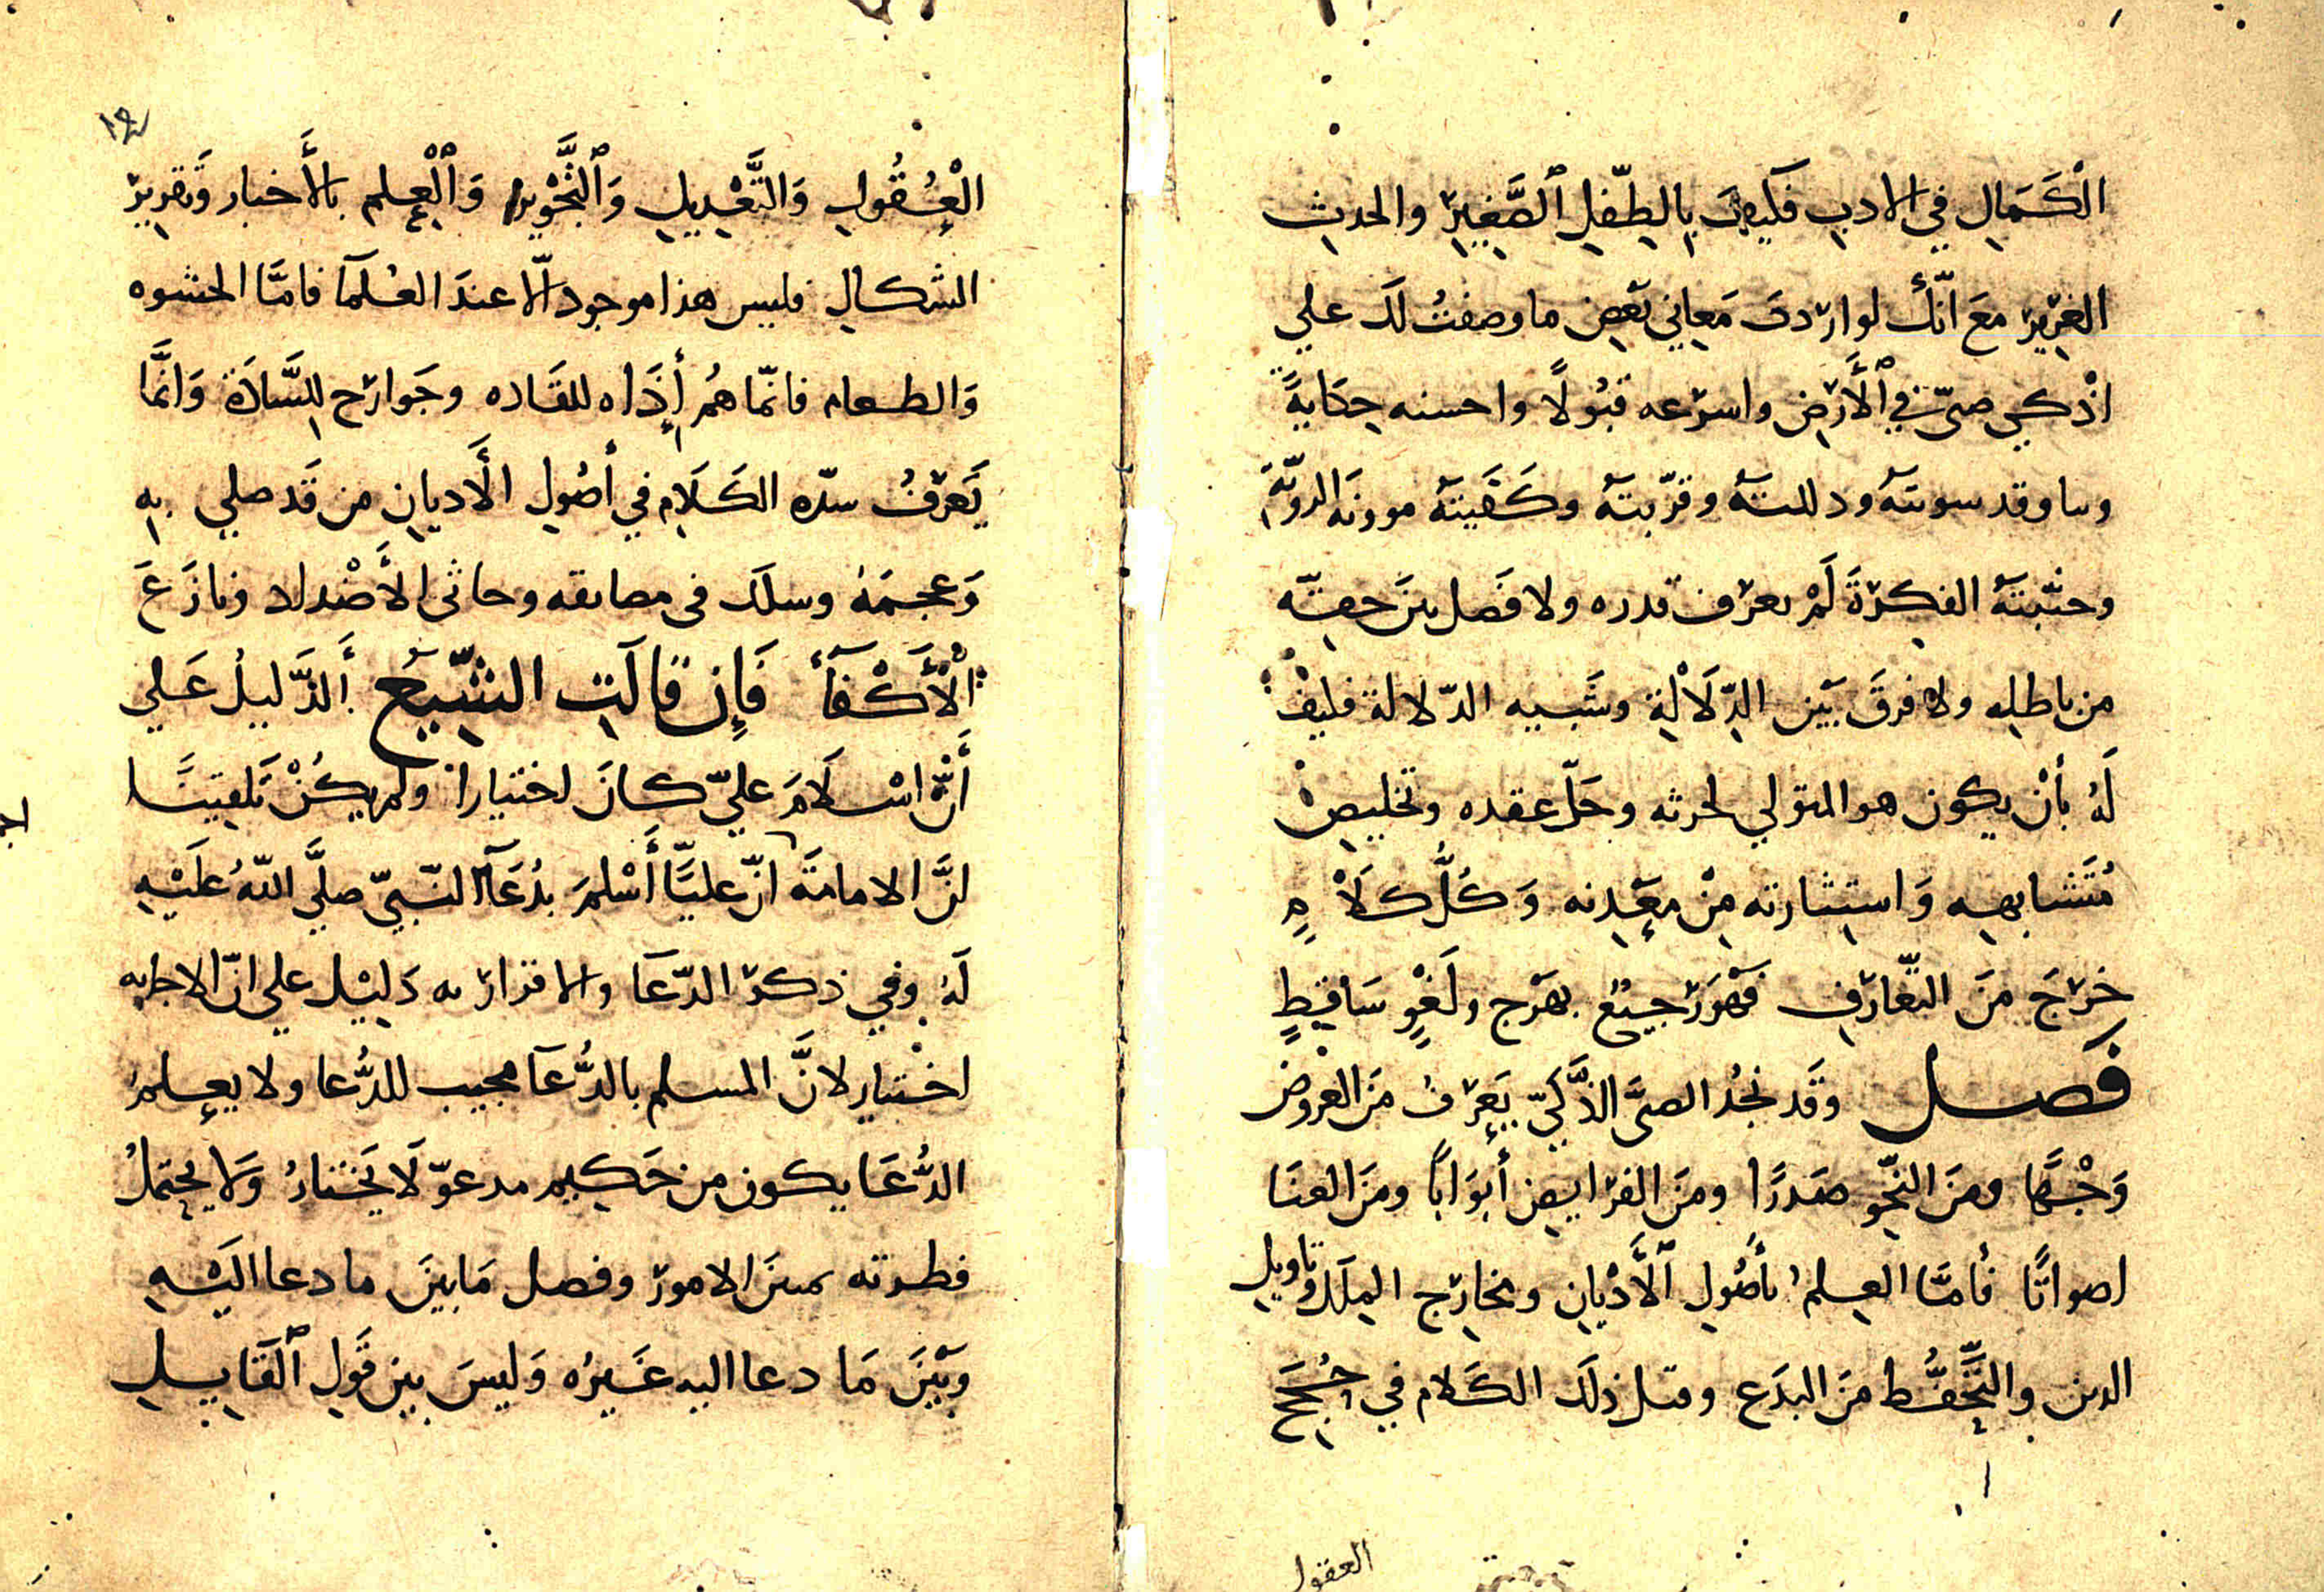 الْكَمَالِ في الادبِ فَكَيفَ بِالطِّفلِ ٱلصَّغِيرِ والحدثِ
الغرِيرِ مَعَ انَّكَ لو اردتَ مَعاني بَعضِ ما وصفتُ لَكَ علي
اذكي صبيّ في ٱلأَرضِ واسرعه قبُولًا واحسنه حِكَايةً
وبيانا وقد سويته ودللته وقرّبتهٔ وكَفَيتهٔ موونة الرويّة
وجنّبتهٔ الفِكرةَ لَمْ يعرف قدره ولا فَصل بينَ حقّه
من باطلِه ولا فرقَ بَين الدِّلَالَةِ وشَبيه الدّلالة فكيف
لَهُ بأن يكون هو المتولي لتجربته وحَلّ عقده وتخليصِ
مُتَشابهِه وَاستِثارته مِنْ مَعِدنه وَكُلُّ كَلَامٍ
خرَجَ منَ التّعارف فهو رجيعٌ بهرَج ولَغْوٌ سَاقِطٌ
فَصل وقَد نجدُ الصبيَّ الذَّكيّ يعرفُ منَ العَروض
وَجْهًا ومنَ النّحوِ صَدرًا ومنَ الفرايضِ أبوَابًا ومنَ الغنَا
اصواتًا فأمّا العِلمُ بأصُولِ ٱلأَدْيانِ ومخارج المِلَل وتاويل
الدين والتَّحَفُّظ منَ البدَع وقبل ذلَكَ الكَلام في حُجَجِ
العقول
١٤
الْعُقُولِ وَالتَّعْدِيلِ وَٱلتَّجْوِيرِ وَٱلْعِلمِ بالأَخبار وَتقرِير
الشكالِ فليس هذا موجود الّا عندَ العُلمآ فامّا الحشوه
وَالطعام فانّما هُم أداه للقَاده وجَوارح للسَّادَة وَانَّما
يَعرفُ شدّه الكَلَام في أصُولِ الأَديانِ من قَد صلي به
وَعجمَهُ وسلك في مضايقه وحاثى الأَضداد ونازَعَ
الْأَكْفآءَ فَإِن قالَتِ الشّيعَ الدَّليلُ عَلي
أَنَّ اسْلَامَ عليّ كانَ اختيارا ولم يكُنْ تَلقينًا
انَّ الامامةَ انّ عليًّا أَسْلمَ بدُعَآ النّبيّ صلَّى اللهُ عليْهِ
لَهُ وفي ذكر الدّعَآ والاقرار به دَليْل علي انّ الاجابه
اختيار لانَّ المسلم بالدُّعآ مجيب للدُّعا ولا يعلمُ
الدُّعَا يكون من حَكيم مدعوّ لَا يَختارُ وَلَا يحتمِلُ
فطرته تمييزَ الامور وفصل مَا بينَ ما دعا اليهِ
وَبَيْنَ مَا دعا اليه غَيرُه وَليسَ بين قَولِ ٱلقَايِلِ